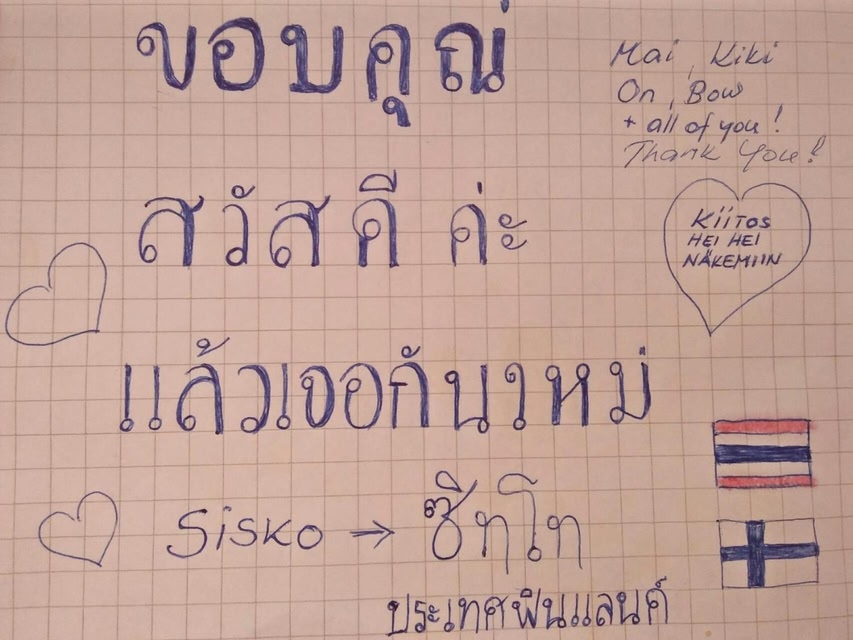 ขอบคุณ
Mai, Kiki
On, Bow
+ all of you!
Thank You!
สวัสดี ค่ะ
KiiTOS
HEI HEI
NÄKEMIIN
แล้วเจอกันใหม่
Sisko →
ประเทศฟินแลนด์